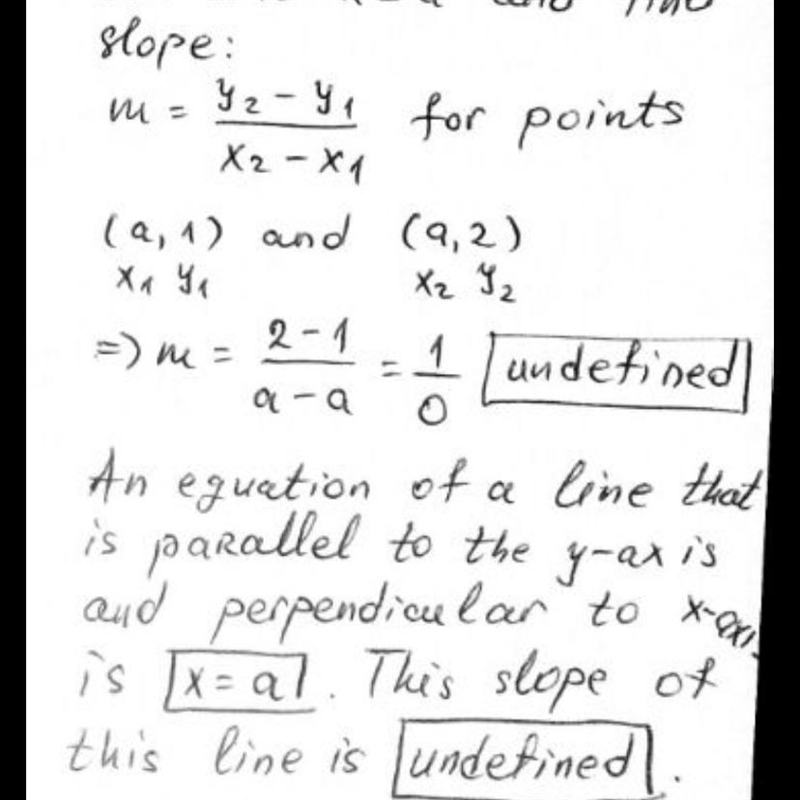 slope:
m = y2 - y1 / x2 - x1 for points
(a, 1) and (a, 2)
x1 y1 x2 y2
=> m = 2 - 1 / a - a = 1 / 0 undefined
An equation of a line that
is parallel to the y-axis
and perpendicular to x-axi
is x = a. This slope of
this line is undefined.